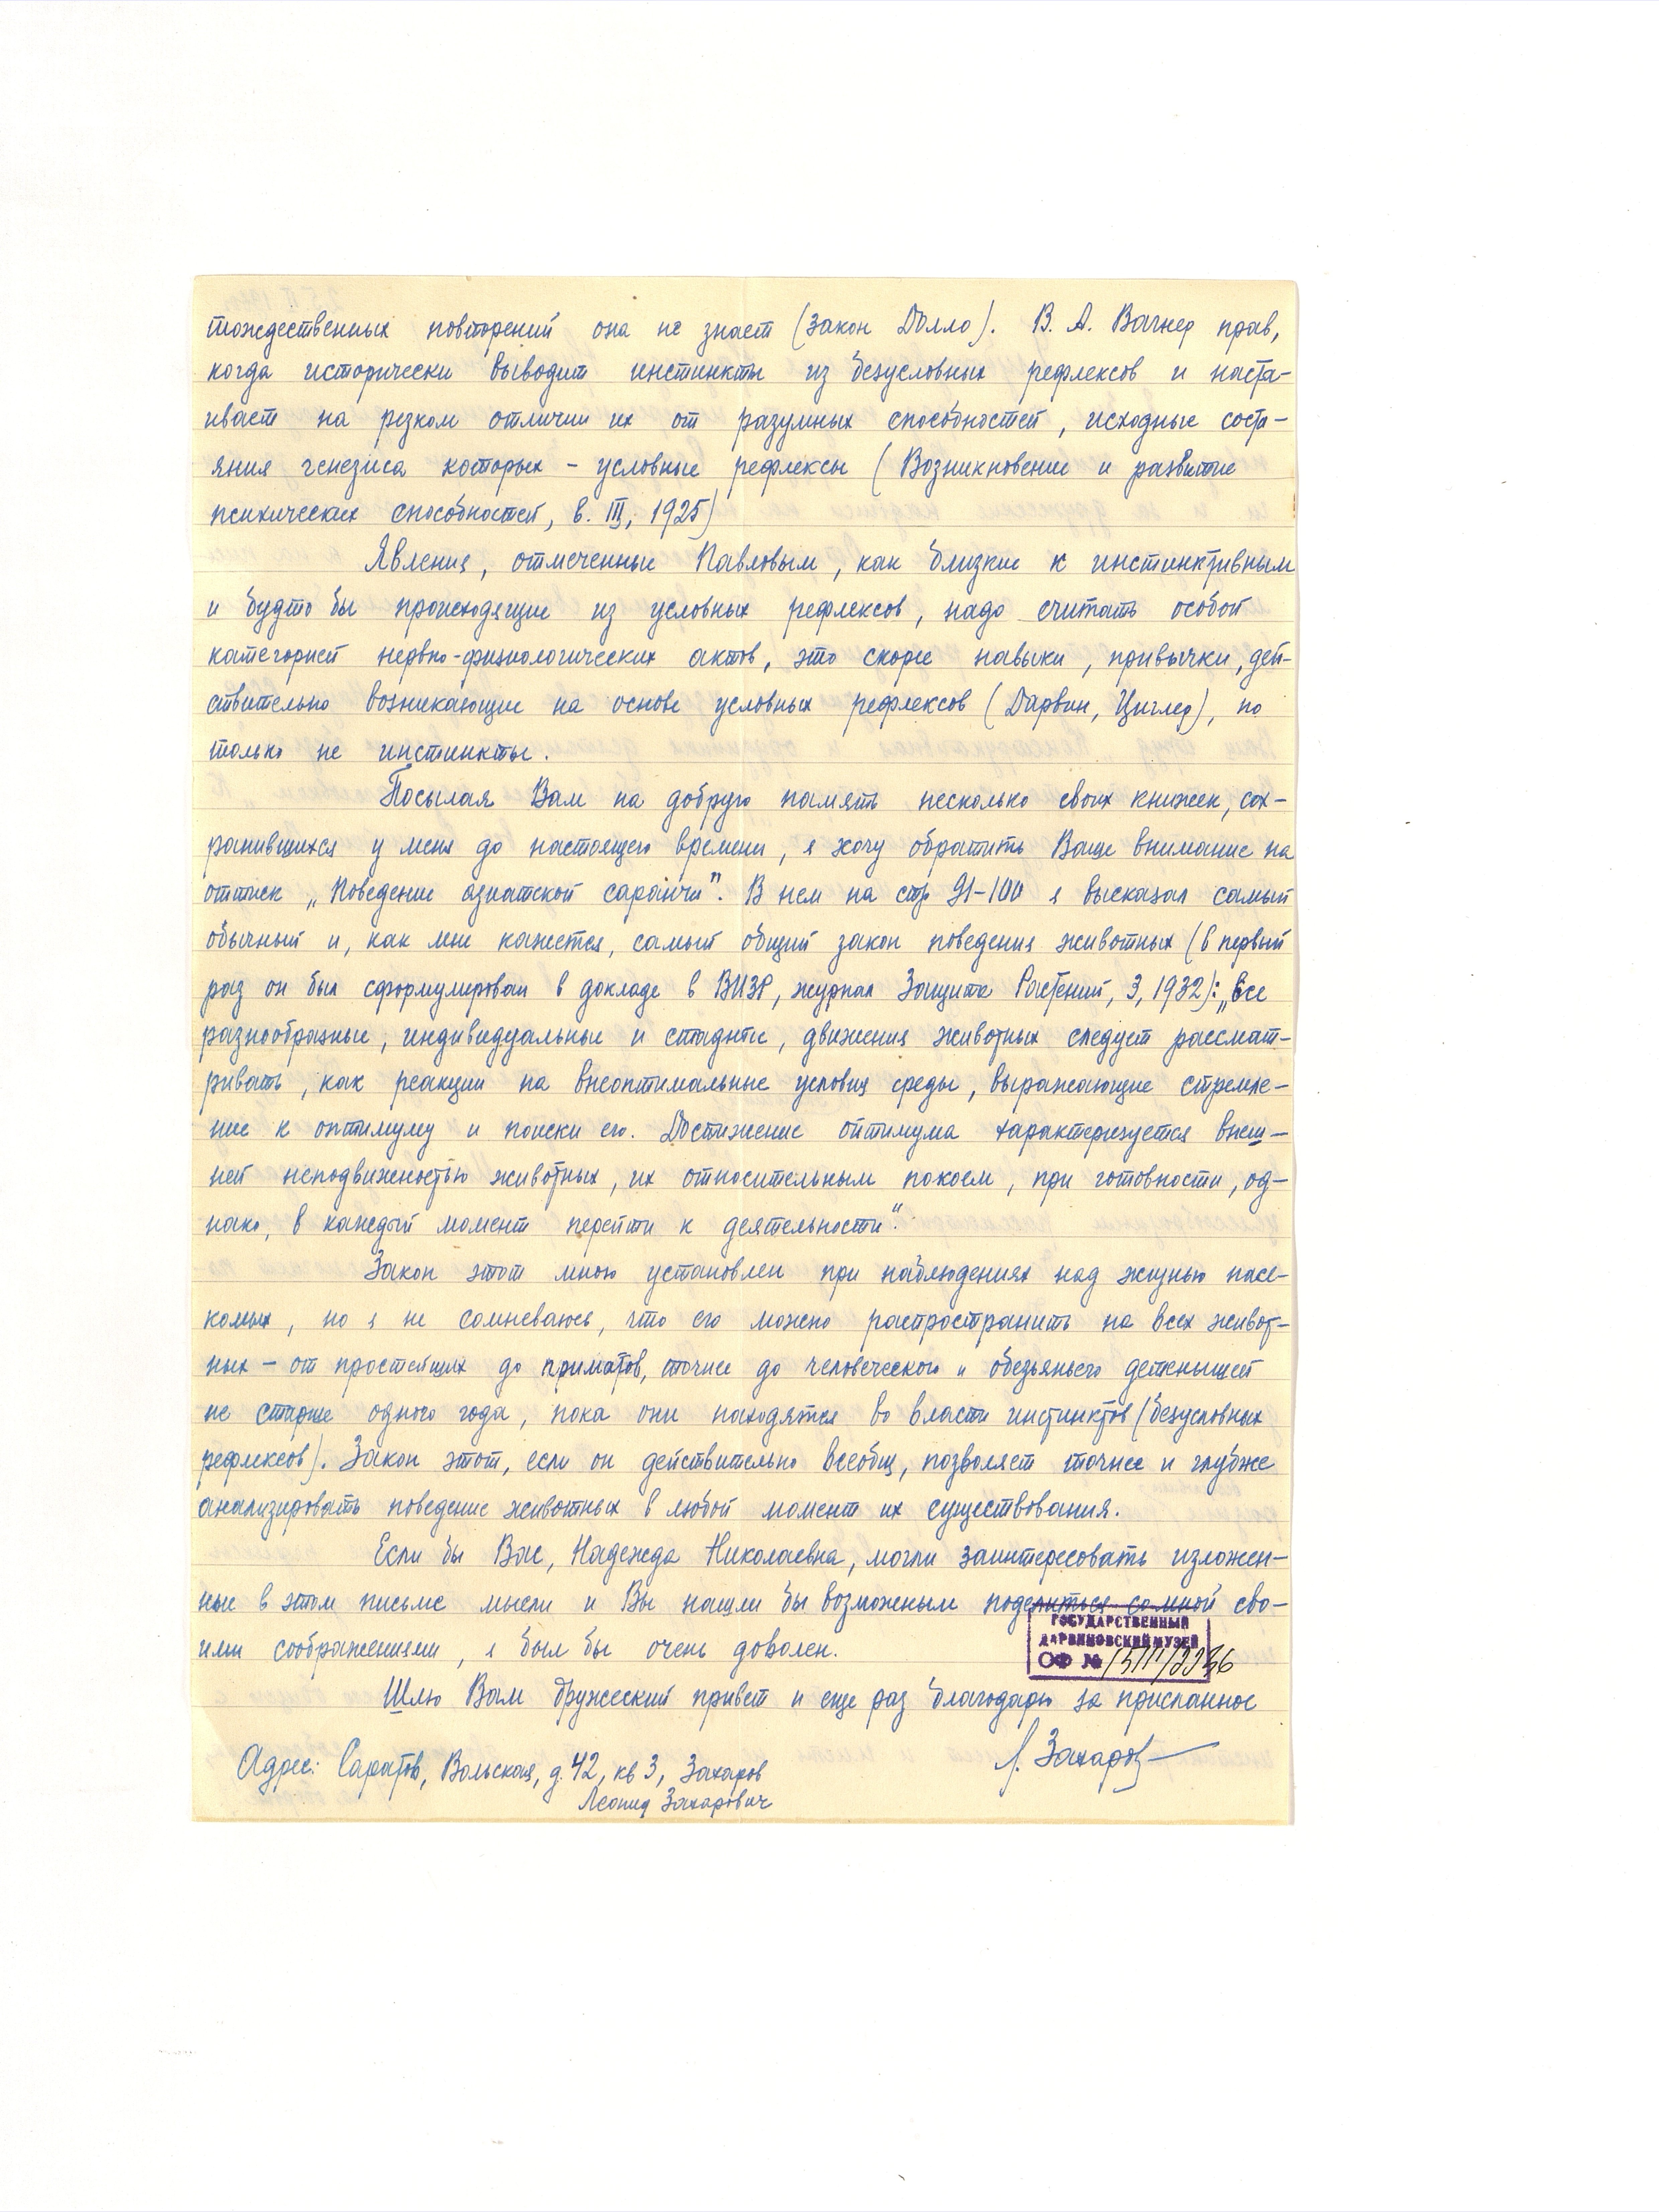 тождественных повторений она не знает (закон Долло). В. А. Вагнер прав,
когда исторически выводит инстинкты из безусловных рефлексов и наста-
ивает на резком отличии их от разумных способностей, исходные состо-
яния генезиса которых – условные рефлексы (Возникновение и развитие
психических способностей, в. III, 1925)
Явления, отмеченные Павловым, как близкие к инстинктивным
и будто бы происходящие из условных рефлексов, надо считать особой
категорией нервно-физиологических актов, это скорее навыки, привычки, дей-
ствительно возникающие на основе условных рефлексов (Дарвин, Циглер), но
только не инстинкты.
Посылая Вам на добрую память несколько своих книжек, сох-
ранившихся у меня до настоящего времени, я хочу обратить Ваше внимание на
оттиск „Поведение азиатской саранчи". В нем на стр 91-100 я высказал самый
обычный и, как мне кажется, самый общий закон поведения животных (в первый
раз он был сформулирован в докладе в ВИЗР, журнал Защита Растений, 3, 1932): „Все
разнообразные, индивидуальные и стадные, движения животных следует рассмат-
ривать, как реакции на внеоптимальные условия среды, выражающие стремле-
ние к оптимуму и поиски его. Достижение оптимума характеризуется внеш-
ней неподвижностью животных, их относительным покоем, при готовности, од-
нако, в каждый момент перейти к деятельности".
Закон этот мною установлен при наблюдениях над жизнью насе-
комых, но я не сомневаюсь, что его можно распространить на всех живот-
ных – от простейших до приматов, точнее до человеческого и обезьяньего детенышей
не старше одного года, пока они находятся во власти инстинктов (безусловных
рефлексов). Закон этот, если он действительно всеобщ, позволяет точнее и глубже
анализировать поведение животных в любой момент их существования.
Если бы Вас, Надежда Николаевна, могли заинтересовать изложен-
ные в этом письме мысли и Вы нашли бы возможным поделиться со мной сво-
ими соображениями, я был бы очень доволен.
ГОСУДАРСТВЕННЫЙ
ДАРВИНОВСКИЙ МУЗЕЙ
ОФ №
Шлю Вам дружеский привет и еще раз благодарю за присланное
Л. Захаров
Адрес: Саратов, Вольская, д. 42, кв 3, Захаров
Леонид Захарович